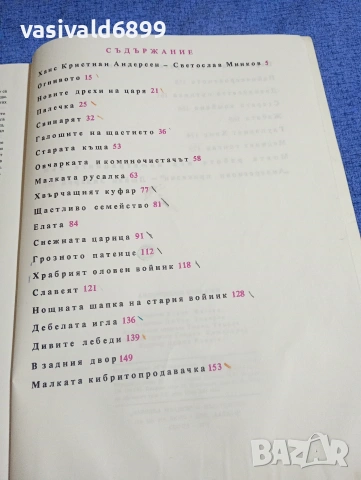 vladislav6899
СЪДЪРЖАНИЕ
Ханс Кристиан Андерсен – Светослав Минков 5
Огнивото 15
Новите дрехи на царя 21
Палечка 25
Свинарят 32
Галошите на щастието 36
Старата къща 53
Овчарката и коминочистачът 58
Малката русалка 63
Хвърчащият куфар 77
Щастливо семейство 81
Елата 84
Снежната царица 91
Грозното патенце 112
Храбрият оловен войник 118
Славеят 121
Нощната шапка на стария войник 128
Дебелата игла 136
Дивите лебеди 139
В задния двор 149
Малката кибритопродавачка 153
BAZAR